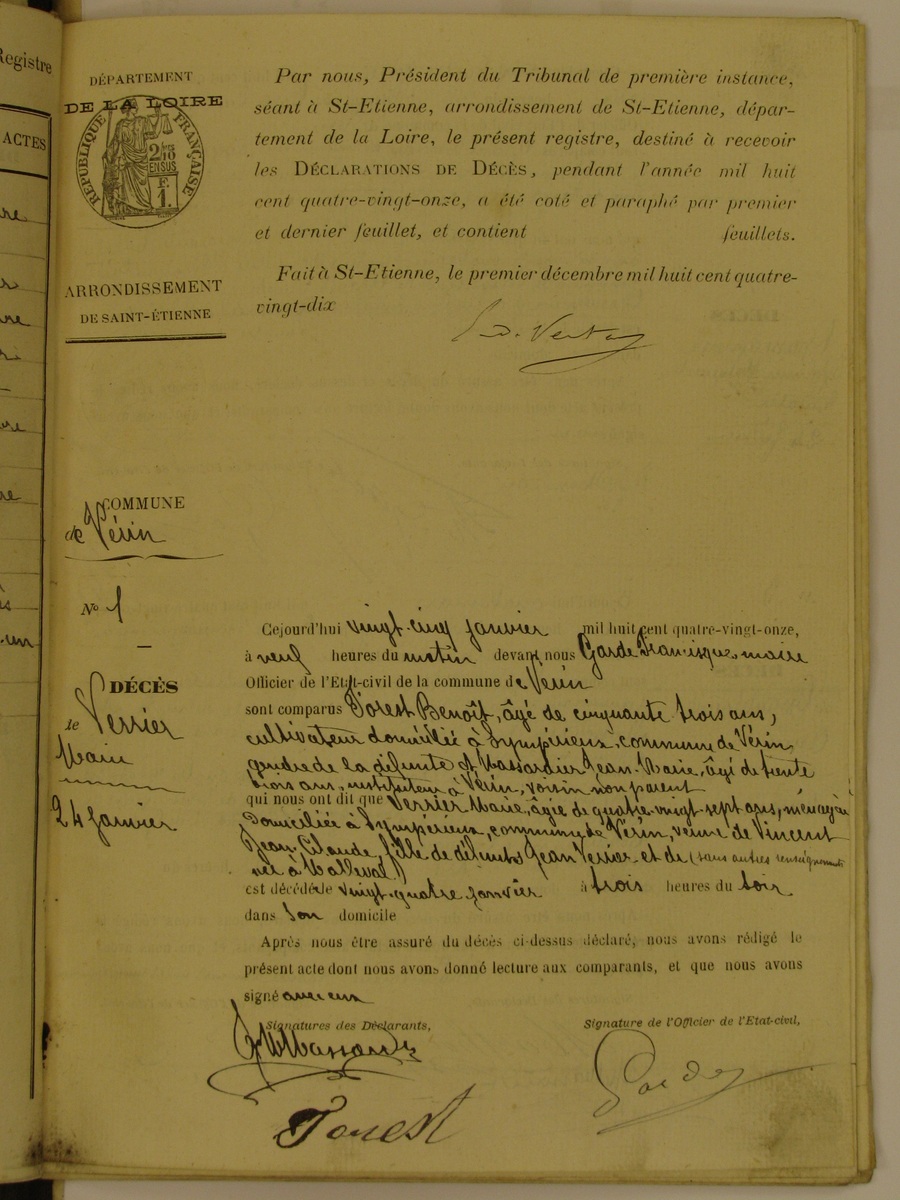 Registre
ACTES
DÉPARTEMENT
DE LA LOIRE
RÉPUBLIQUE FRANÇAISE
2/10
EN SUS
F.
1.
ARRONDISSEMENT
DE SAINT-ÉTIENNE
Par nous, Président du Tribunal de première instance,
séant à St-Etienne, arrondissement de St-Etienne, dépar-
tement de la Loire, le présent registre, destiné à recevoir
les DÉCLARATIONS DE DÉCÈS, pendant l'année mil huit
cent quatre-vingt-onze, a été coté et paraphé par premier
et dernier feuillet, et contient feuillets.
Fait à St-Etienne, le premier décembre mil huit cent quatre-
vingt-dix
COMMUNE
de Vérin
No 1
DÉCÈS
de Verrier
Marie
24 Janvier
Cejourd'hui vingt-cinq janvier mil huit cent quatre-vingt-onze,
à neuf heures du matin devant nous Garde Francisque, maire
Officier de l'Etat-civil de la commune de Vérin
sont comparus Forest Benoît, âgé de cinquante trois ans,
cultivateur domicilié à Sympérieux, commune de Vérin,
gendre de la défunte et Massardier Jean-Marie, âgé de trente
trois ans, instituteur à Vérin, voisin non parent
qui nous ont dit que Verrier Marie, âgée de quatre-vingt-sept ans, ménagère
Domiciliée à Sympérieux, commune de Vérin, veuve de Vincent
Jean-Claude, fille de défunts Jean Verrier et de (sans autres renseignements
née à Malleval)
est décédée le vingt-quatre janvier à trois heures du soir
dans son domicile
Après nous être assuré du décès ci-dessus déclaré, nous avons rédigé le
présent acte dont nous avons donné lecture aux comparants, et que nous avons
signé avec eux
Signatures des Déclarants,
Signature de l'Officier de l'Etat-civil,
Massardier
Garde
Forest